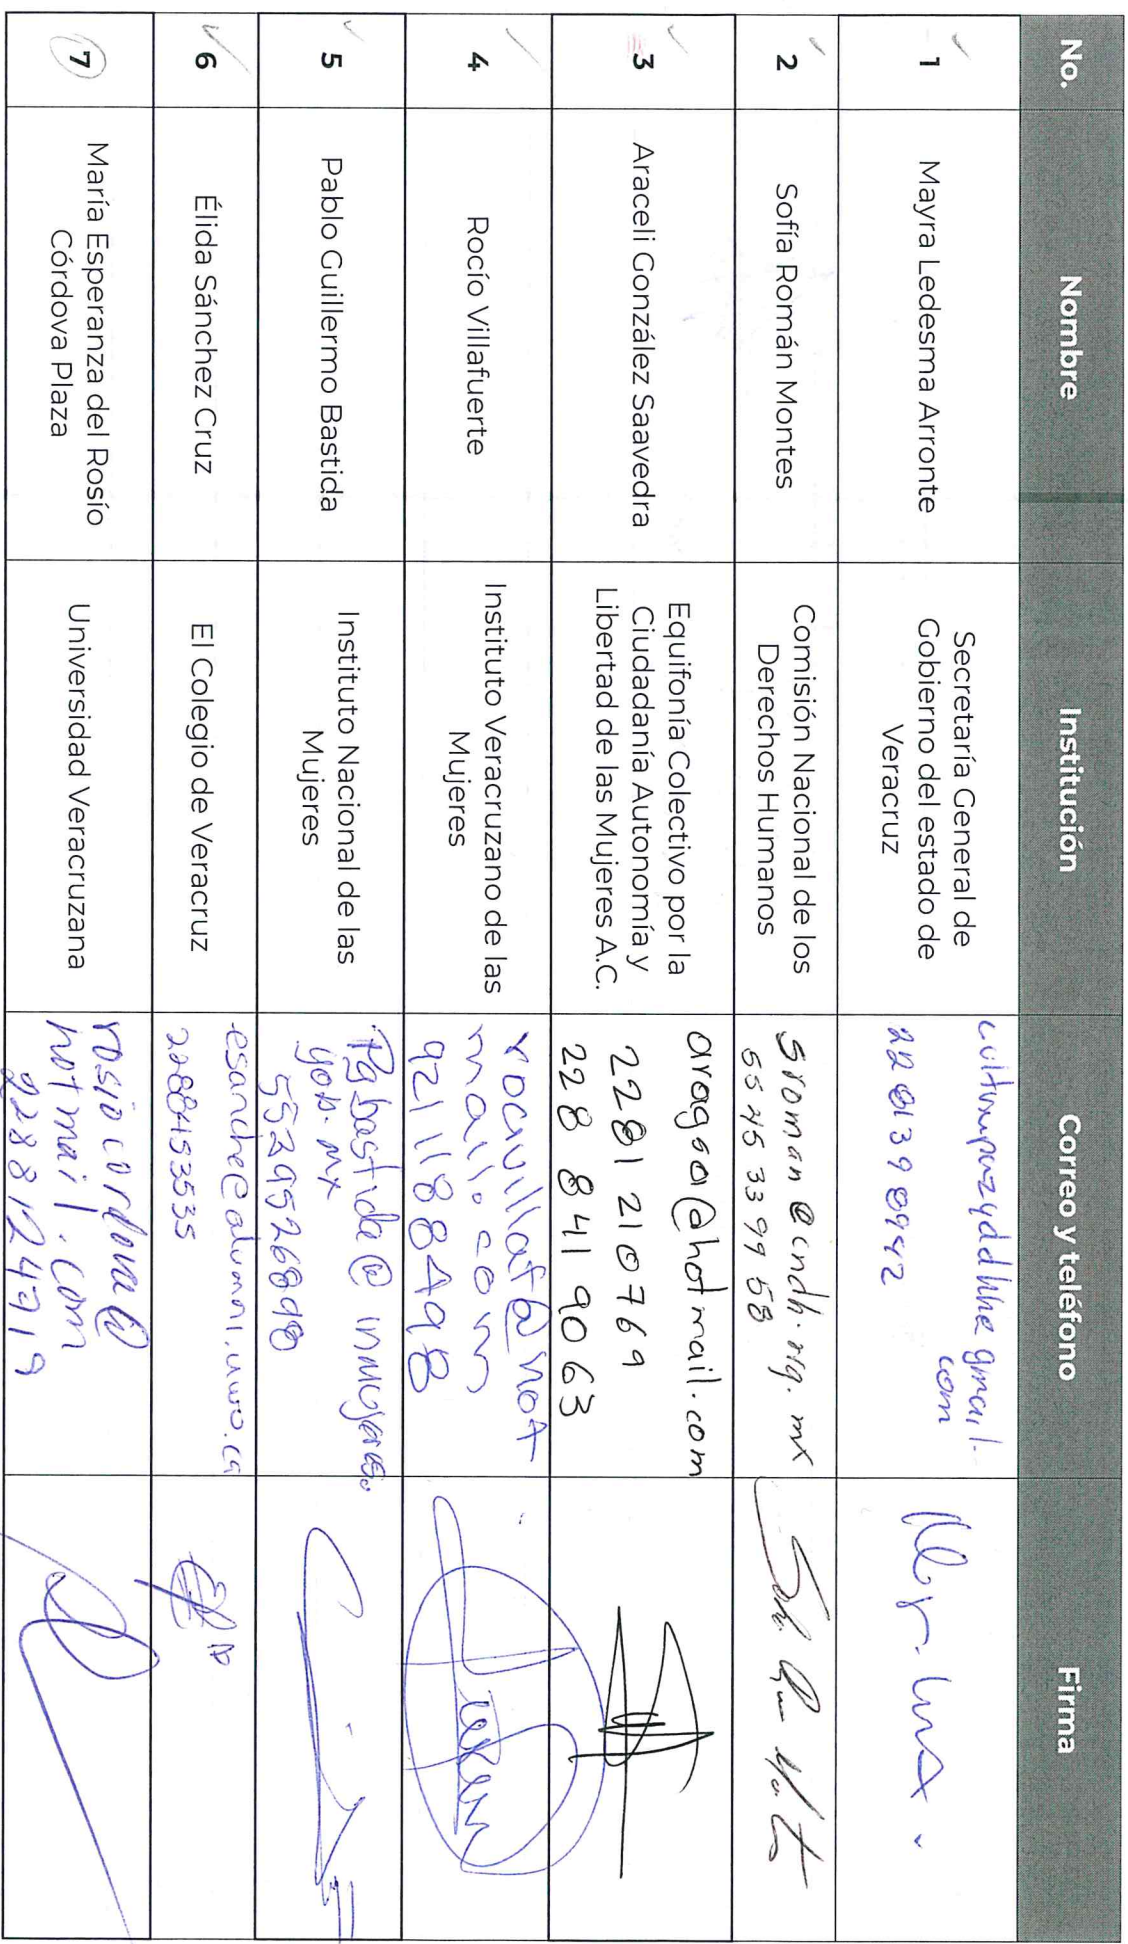 No. Nombre Institución Correo y teléfono Firma
1 Mayra Ledesma Arronte
Secretaría General de
Gobierno del estado de
Veracruz
gmail.
com
2 Sofía Román Montes
Comisión Nacional de los
Derechos Humanos
sroman@cndh.org.mx
55 45 33 99 58
3 Araceli González Saavedra
Equifonía Colectivo por la
Ciudadanía Autonomía y
Libertad de las Mujeres A.C.
aragsa@hotmail.com
2281 210769
228 841 9063
4 Rocío Villafuerte
Instituto Veracruzano de las
Mujeres
rocivillaf@hot
mail.com
921 1188498
5 Pablo Guillermo Bastida
Instituto Nacional de las
Mujeres
Pgbastida@inmujeres.
gob.mx
6 Élida Sánchez Cruz
El Colegio de Veracruz
esanche@alumni.uwo.ca
2288453535
7 María Esperanza del Rosío
Córdova Plaza
Universidad Veracruzana
rosiocordova@
hotmail.com
2288124719